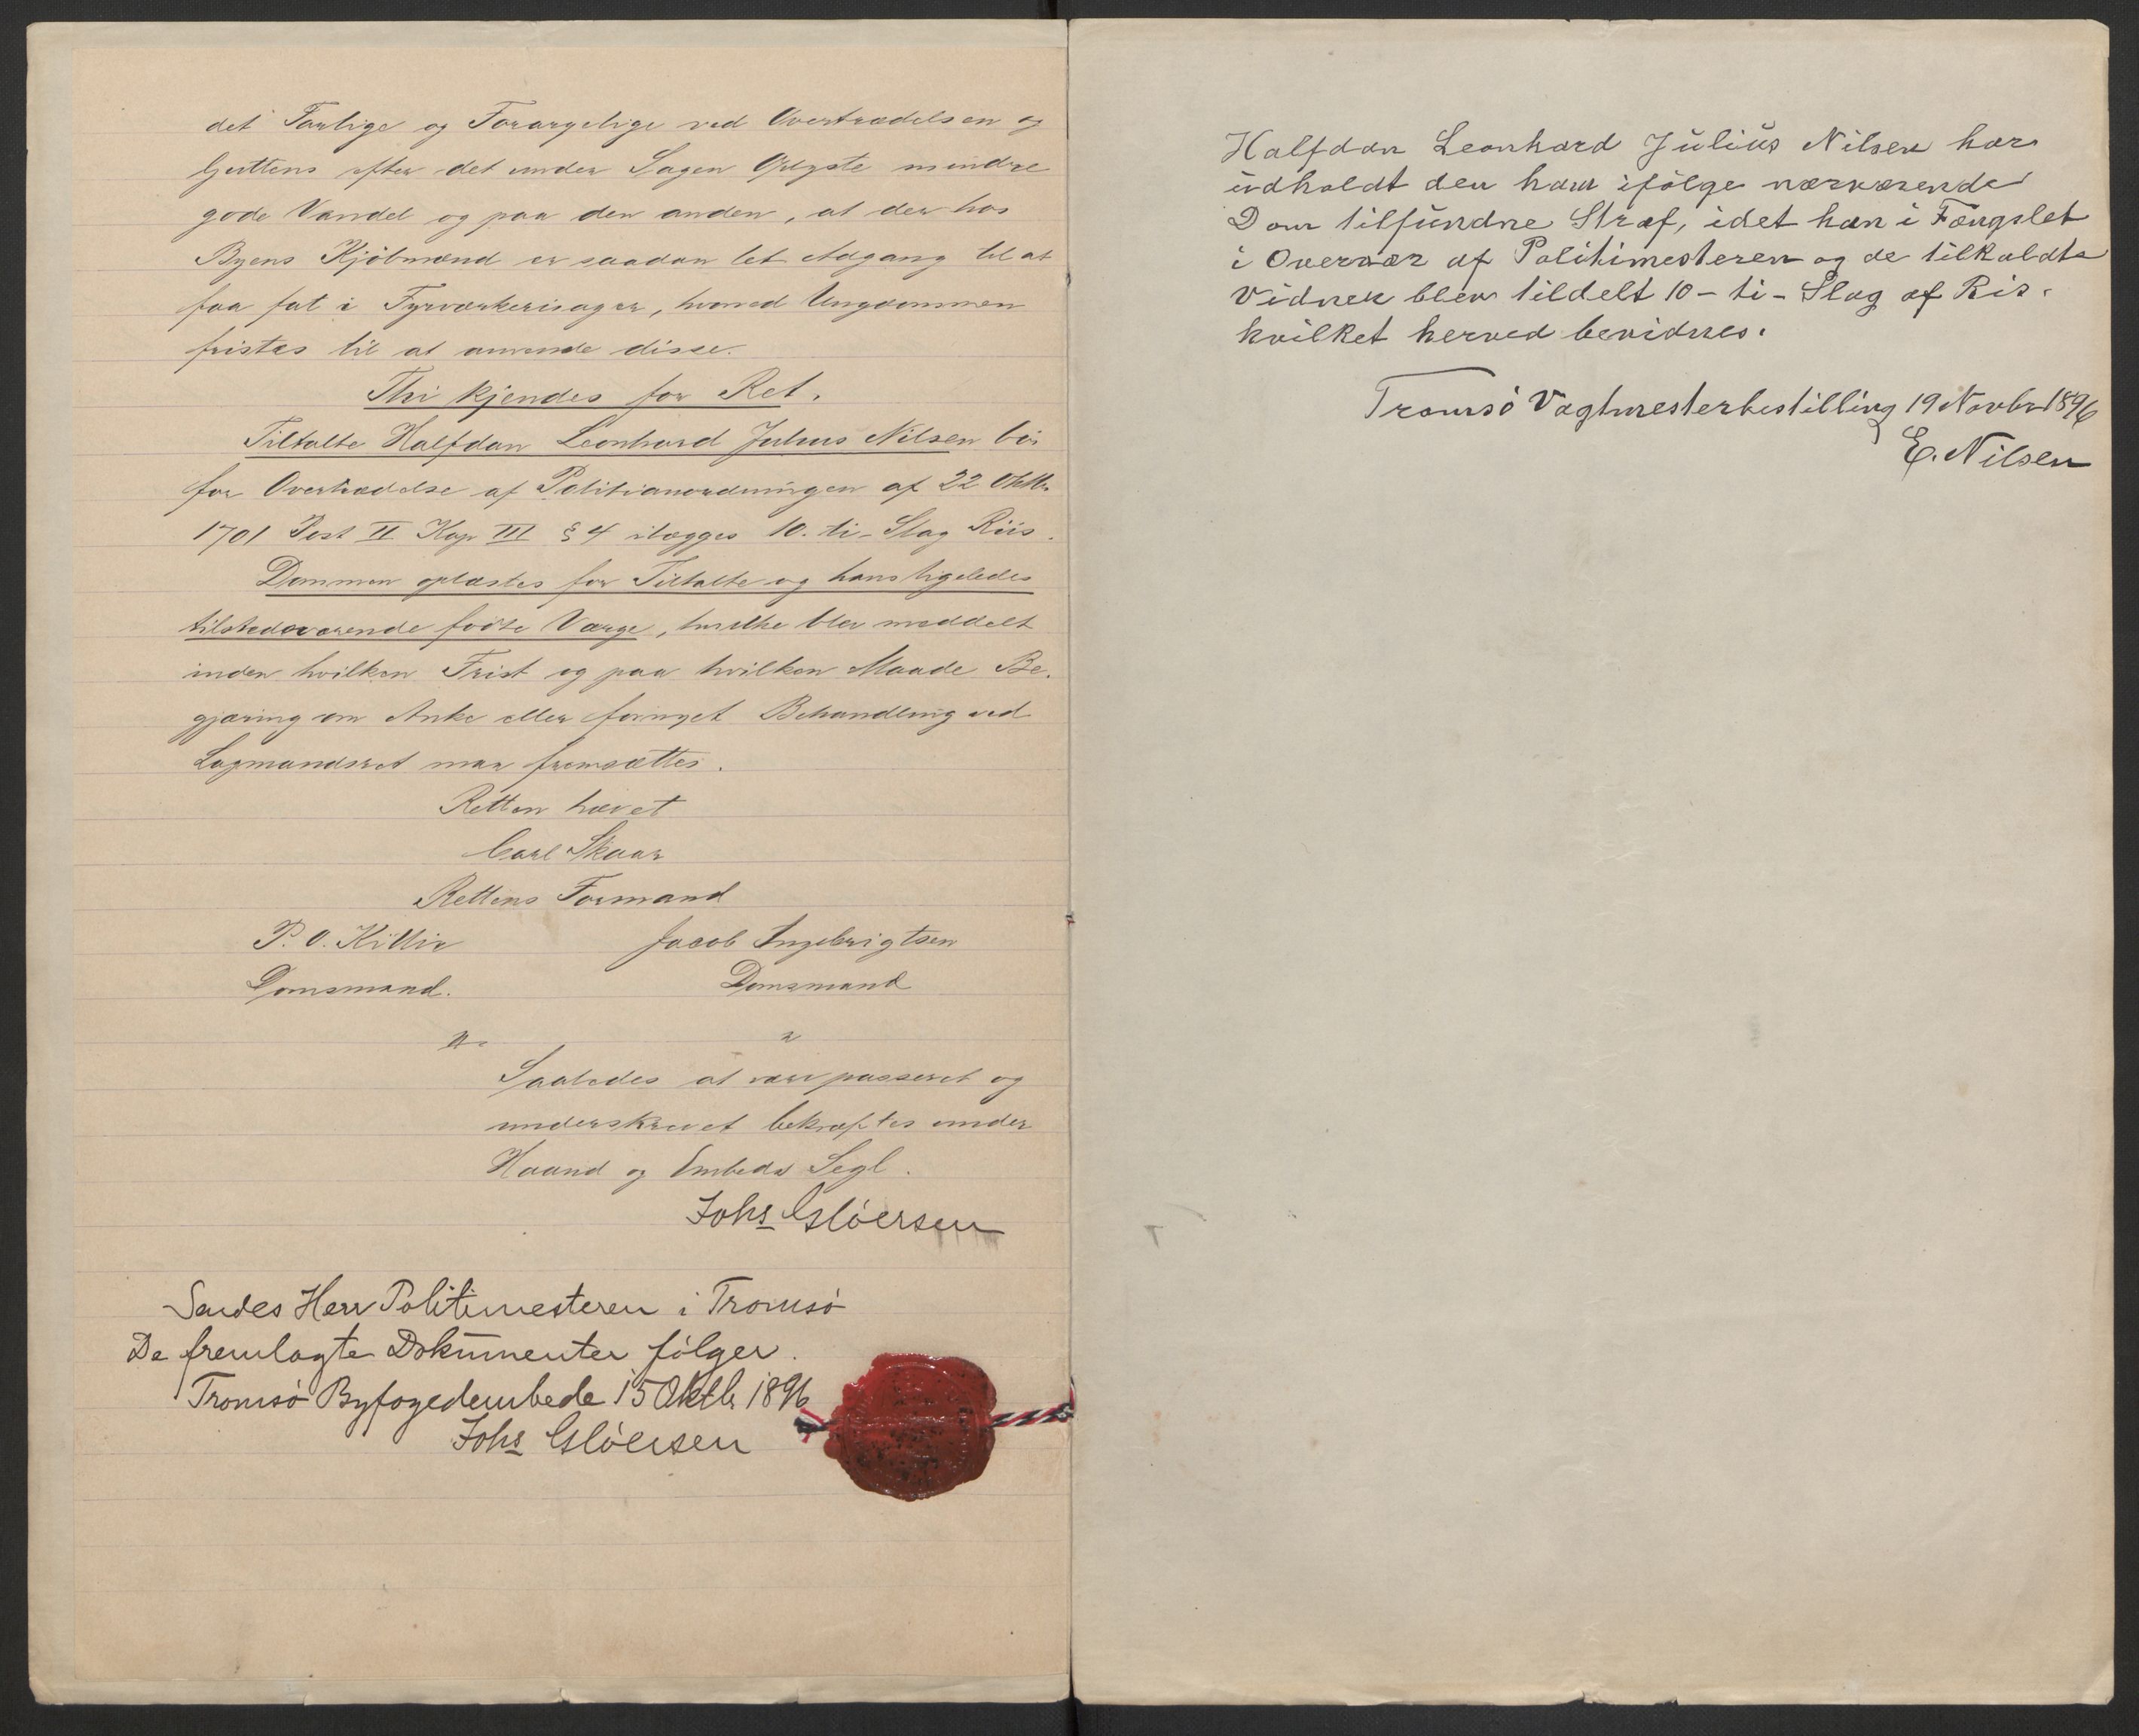 det Farlige og Forargelige ved Overtrædelsen og
Guttens efter det under Sagen Oplyste mindre
gode Vandel og paa den anden, at der hos
Byens Kjöbmænd er saadan let Adgang til at
faa fat i Fyrværkerisager, hvoved Ungdommen
fristes til at anvende disse.
Thi kjendes for Ret.
Tiltalte Halfdan Leonhard Julius Nilsen bör
for Overtrædelse af Politianordningen af 22 Oktbr
1701 Post II Kap III § 4 ilægges 10. ti - Slag Riis.
Dommen oplæstes for Tiltalte og hans ligeledes
tilstedeværende födte Værge, hvilke blev meddelt
inden hvilken Frist og paa hvilken Maade Be-
gjæring om Anke eller fornyet Behandling ved
Lagmandsret maa fremsættes.
Retten hævet
Carl Skaar
Rettens Formand
P. O. Jacob Ingebrigtsen
Domsmand. Domsmand
Saaledes at være passeret og
underskrevet bekræftes under
Haand og Embeds Segl.
Johs Glöersen
Sendes Herr Politimesteren i Tromsö
De fremlagte Dokumenter fölger.
Tromsö Byfogedembede 15 Oktbr 1896
Johs Glöersen
Halfdan Leonhard Julius Nilsen har
udholdt den ham ifölge nærværende
Dom tilfundne Straf, idet han i Fængslet
i Overvær af Politimesteren og de tilkaldte
Vidner blev tildelt 10 - ti - Slag af Ris.
hvilket herved bevidnes.
Tromsö Vagtmesterbestilling 19 Novbr 1896
E. Nilsen